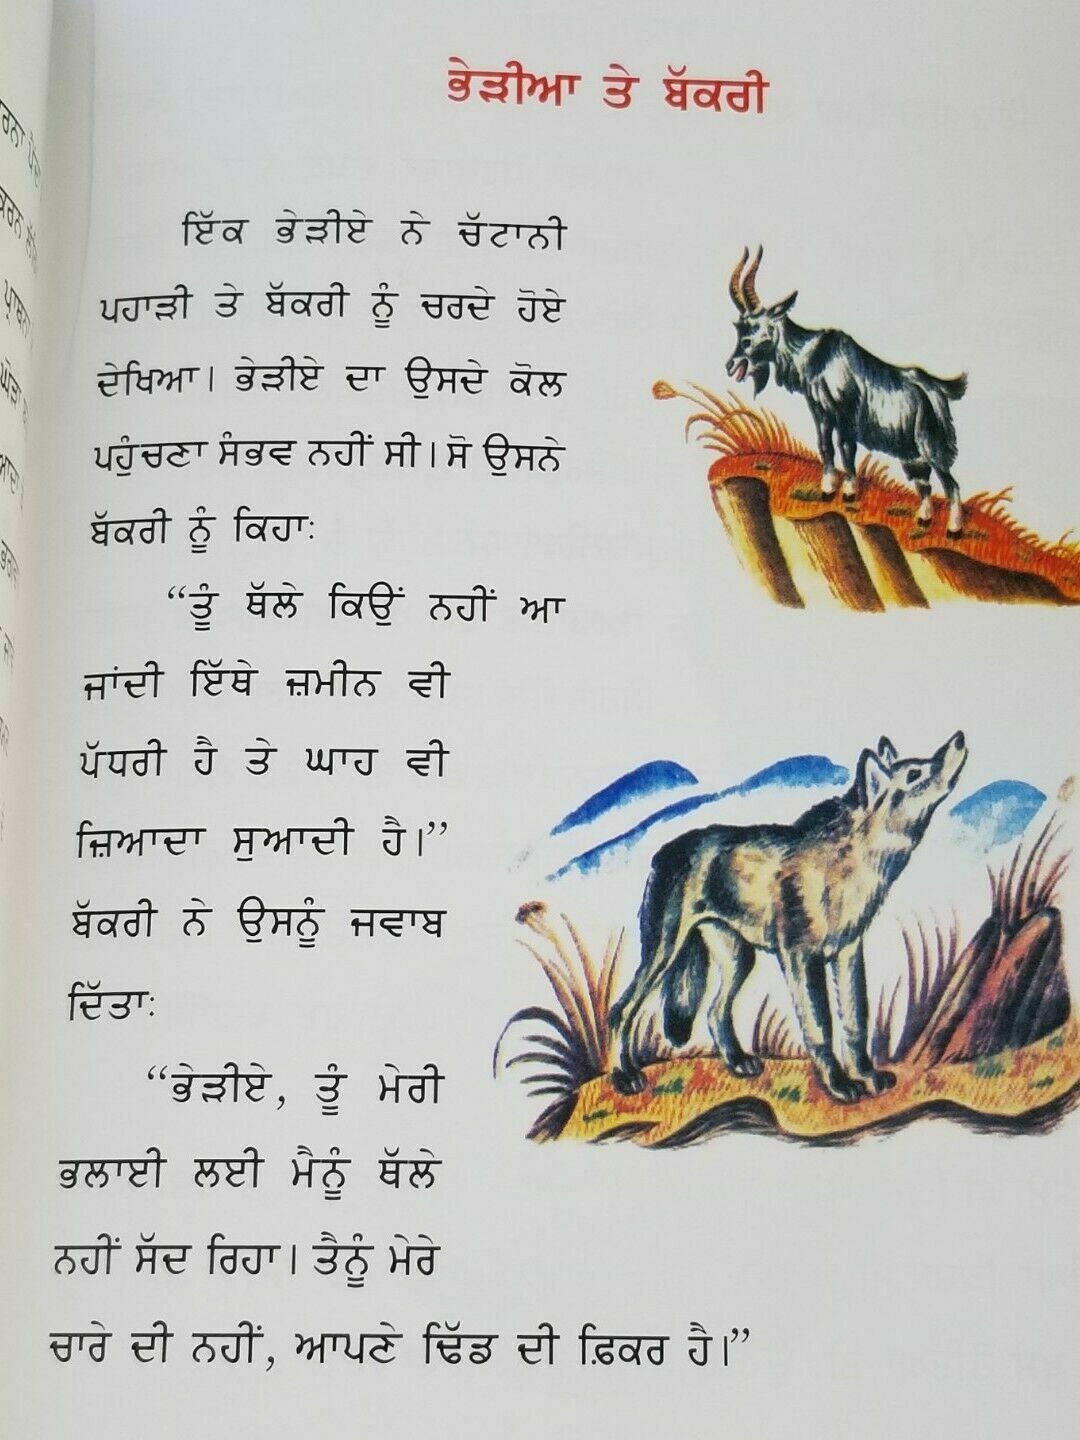 ਭੇੜੀਆ ਤੇ ਬੱਕਰੀ
ਇੱਕ ਭੇੜੀਏ ਨੇ ਚੱਟਾਨੀ
ਪਹਾੜੀ ਤੇ ਬੱਕਰੀ ਨੂੰ ਚਰਦੇ ਹੋਏ
ਦੇਖਿਆ। ਭੇੜੀਏ ਦਾ ਉਸਦੇ ਕੋਲ
ਪਹੁੰਚਣਾ ਸੰਭਵ ਨਹੀਂ ਸੀ। ਸੋ ਉਸਨੇ
ਬੱਕਰੀ ਨੂੰ ਕਿਹਾਃ
“ਤੂੰ ਥੱਲੇ ਕਿਉਂ ਨਹੀਂ ਆ
ਜਾਂਦੀ ਇੱਥੇ ਜ਼ਮੀਨ ਵੀ
ਪੱਧਰੀ ਹੈ ਤੇ ਘਾਹ ਵੀ
ਜ਼ਿਆਦਾ ਸੁਆਦੀ ਹੈ।”
ਬੱਕਰੀ ਨੇ ਉਸਨੂੰ ਜਵਾਬ
ਦਿੱਤਾਃ
“ਭੇੜੀਏ, ਤੂੰ ਮੇਰੀ
ਭਲਾਈ ਲਈ ਮੈਨੂੰ ਥੱਲੇ
ਨਹੀਂ ਸੱਦ ਰਿਹਾ। ਤੈਨੂੰ ਮੇਰੇ
ਚਾਰੇ ਦੀ ਨਹੀਂ, ਆਪਣੇ ਢਿੱਡ ਦੀ ਫ਼ਿਕਰ ਹੈ।”